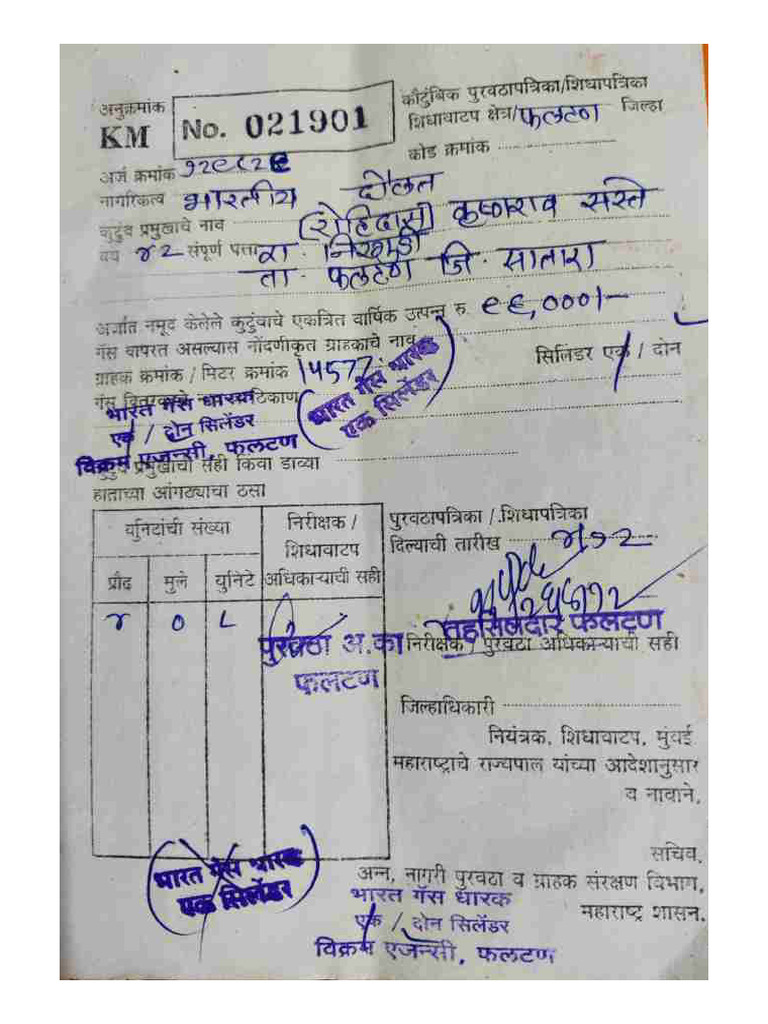 अनुक्रमांक
KM No. 021901
कौटुंबिक पुरवठापत्रिका/शिधापत्रिका
शिधावाटप क्षेत्र/फलटण जिल्हा
कोड क्रमांक
अर्ज क्रमांक
नागरिकत्व भारतीय दौलत
कुटुंब प्रमुखाचे नाव (रोहिदास) कृष्णराव सस्ते
वय ४२ संपूर्ण पत्ता रा.
ता. फलटण जि. सातारा
अर्जात नमूद केलेले कुटुंबाचे एकत्रित वार्षिक उत्पन्न रु. ९६,०००/-
गॅस वापरत असल्यास नोंदणीकृत ग्राहकाचे नाव
सिलिंडर एक / दोन
ग्राहक क्रमांक / मिटर क्रमांक 14577
भारत गॅस धारक
एक सिलेंडर
भारत गॅस धारक
एक / दोन सिलेंडर
विक्रम एजन्सी, फलटण
कुटुंब प्रमुखाची सही किंवा डाव्या
हाताच्या आंगठ्याचा ठसा
युनिटांची संख्या
निरीक्षक /
शिधावाटप
अधिकाऱ्याची सही
प्रौढ मुले युनिटे
४ ० ८
पुरवठा अ.का
फलटण
पुरवठापत्रिका / शिधापत्रिका
दिल्याची तारीख
तहसिलदार फलटण
निरीक्षक / पुरवठा अधिकाऱ्याची सही
जिल्हाधिकारी
नियंत्रक, शिधावाटप, मुंबई.
महाराष्ट्राचे राज्यपाल यांच्या आदेशानुसार
व नावाने,
सचिव,
अन्न, नागरी पुरवठा व ग्राहक संरक्षण विभाग,
महाराष्ट्र शासन.
भारत गॅस धारक
एक सिलेंडर
भारत गॅस धारक
एक / दोन सिलेंडर
विक्रम एजेन्सी, फलटण